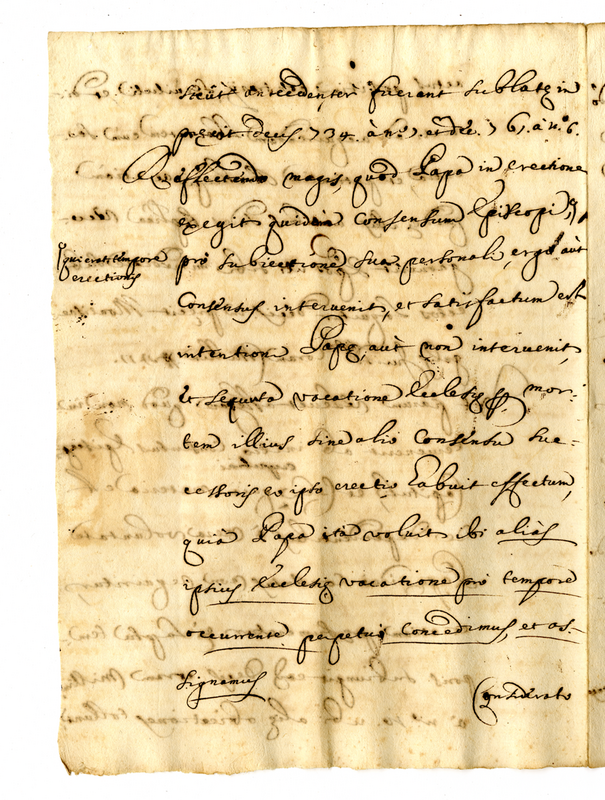 sicut antecedenter fuerant sublatę in
pręcit. decis. 734. à n.º 7. et dec. 761. à n.º 6.
Reflectendo magis, quod Papa in erectione
exegit quidem consensum Episcopi,
qui erat tempore
erectionis
pro subiectione sua personali, ergo aut
consensus intervenit, et satisfactum est
intentioni Papę, aut non intervenit,
et sequuta vacatione Ecclesię per mor-
tem illius sine alio consensu suc-
cessoris eo ipso erectio habuit effectum,
quia Papa ità voluit ibi aliàs
ipsius Ecclesię vacatione pro tempore
occurrente perpetuò concedimus, et as-
signamus
Considerato